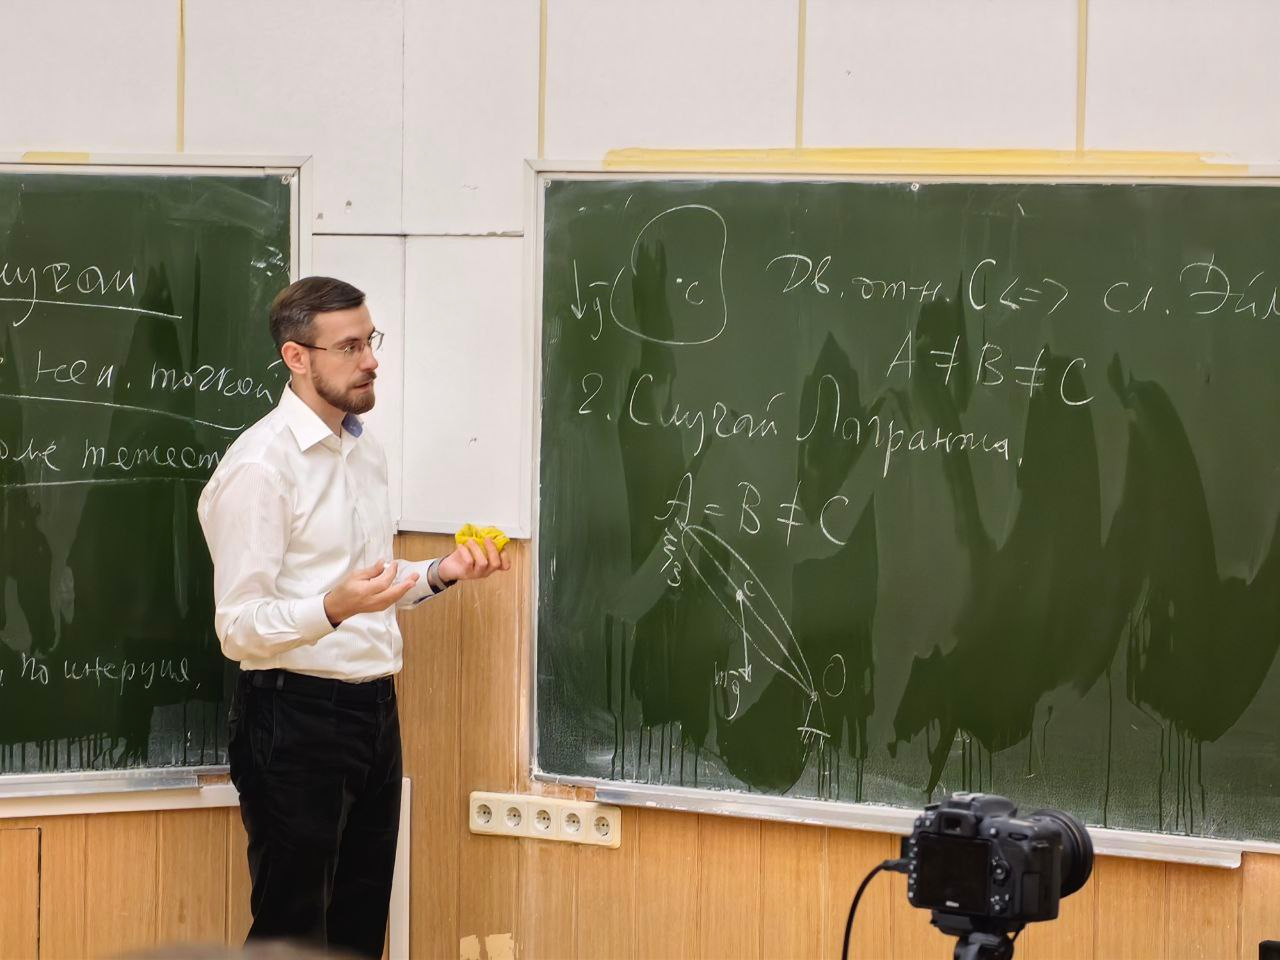 Случаи
с неп. точкой
поле тяжест
по инерции,
g
c
Дв. отн. C <=> сл. Эйл
A ≠ B ≠ C
2. Случай Лагранжа.
A = B ≠ C
c
mg
O